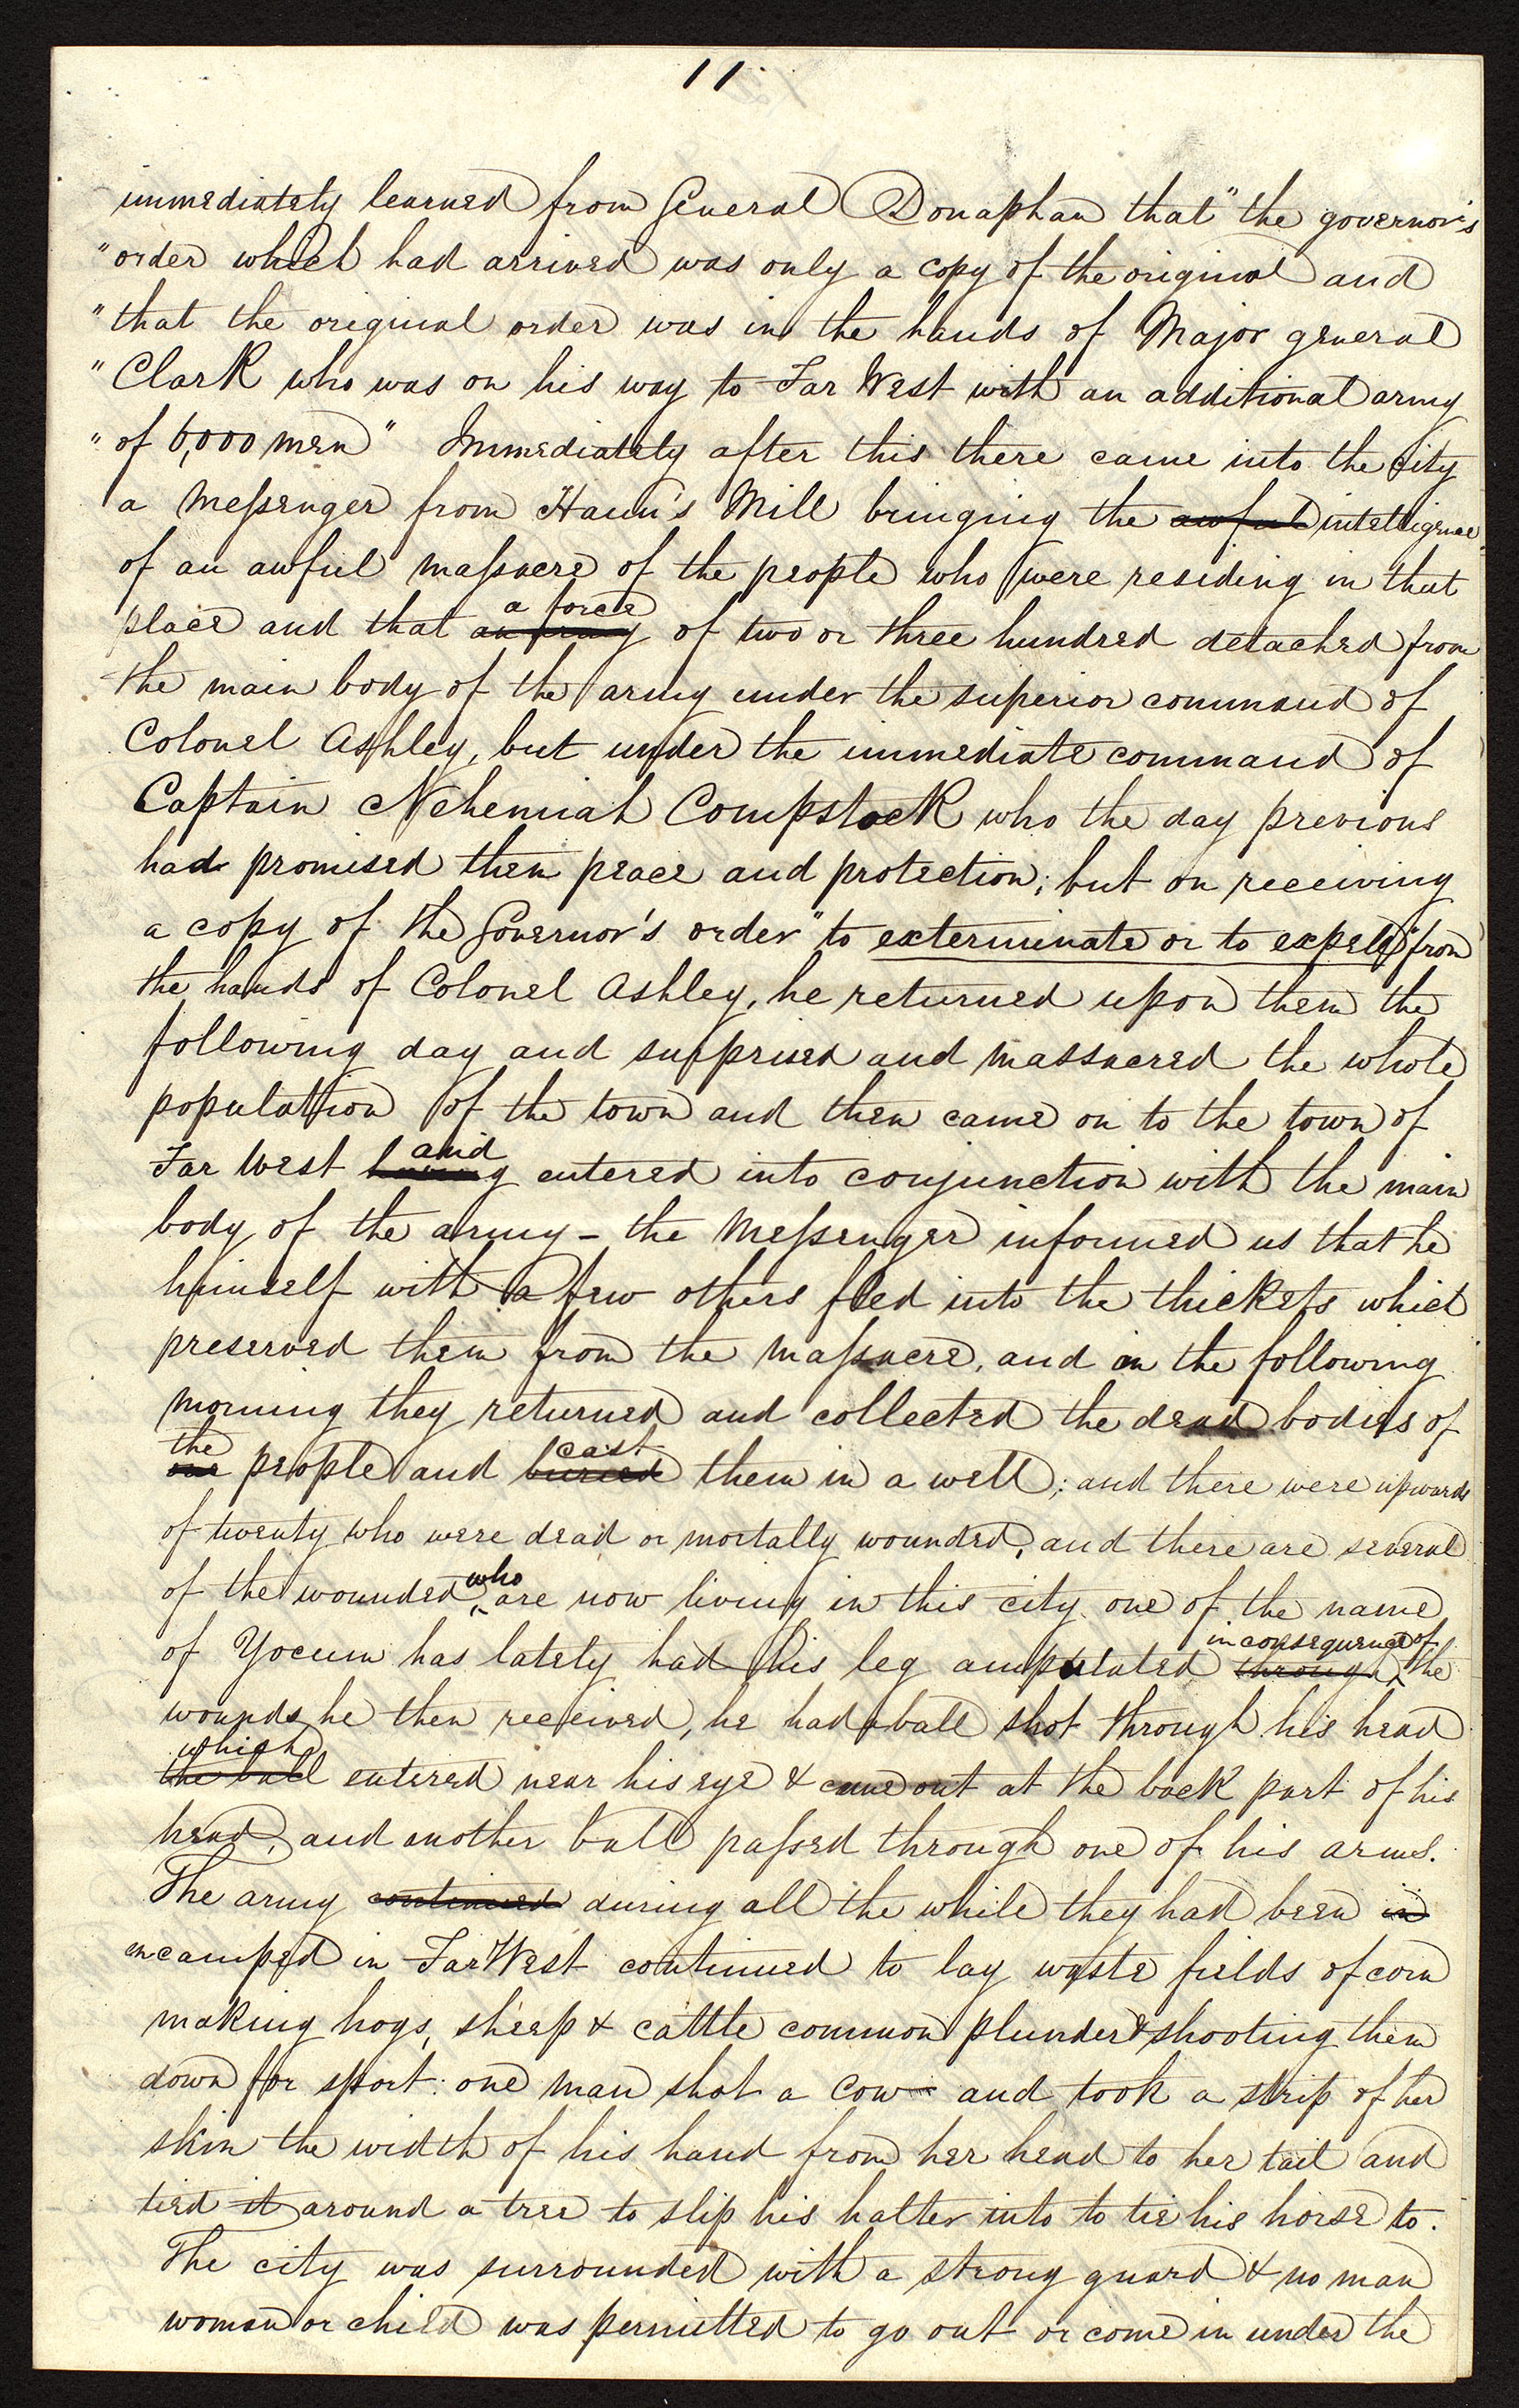 11.
immediately learned from General Donaphan that "the governor's
"order which had arrived was only a copy of the original and
"that the original order was in the hands of Major general
"Clark who was on his way to Far West with an additional army
"of 6,000 men" Immediately after this there came into the city
a messenger from Haun's Mill bringing the awful intelligence
of an awful massacre of the people who were residing in that
a force
place and that an army of two or three hundred detached from
the main body of the army under the superior command of
Colonel Ashley, but under the immediate command of
Captain Nehemiah Compstock who the day previous
had promised them peace and protection; but on receiving
a copy of the Governor's order "to exterminate or to expell" from
the hands of Colonel Ashley, he returned upon them the
following day and surprised and massacred the whole
population of the town and then came on to the town of
and
Far West having entered into conjunction with the main
body of the army – the messenger informed us that he
himself with a few others fled into the thickets which
preserved them from the massacre, and on the following
morning they returned and collected the dead bodies of
the cast
our people and buried them in a well; and there were upwards
of twenty who were dead or mortally wounded, and there are several
who
of the wounded are now living in this city. one of the name
in consequence of
of Yocum has lately had his leg amputated through the
wounds he then received, he had a ball shot through his head
which
the ball entered near his eye & came out at the back part of his
head, and another ball passed through one of his arms.
The army continued during all the while they had been in
encamped in Far West continued to lay waste fields of corn
making hogs, sheep & cattle common plunder & shooting them
down for sport: one man shot a Cow and took a strip of her
skin the width of his hand from her head to her tail and
tied it around a tree to slip his halter into to tie his horse to.
The city was surrounded with a strong guard & no man
woman or child was permitted to go out or come in under the